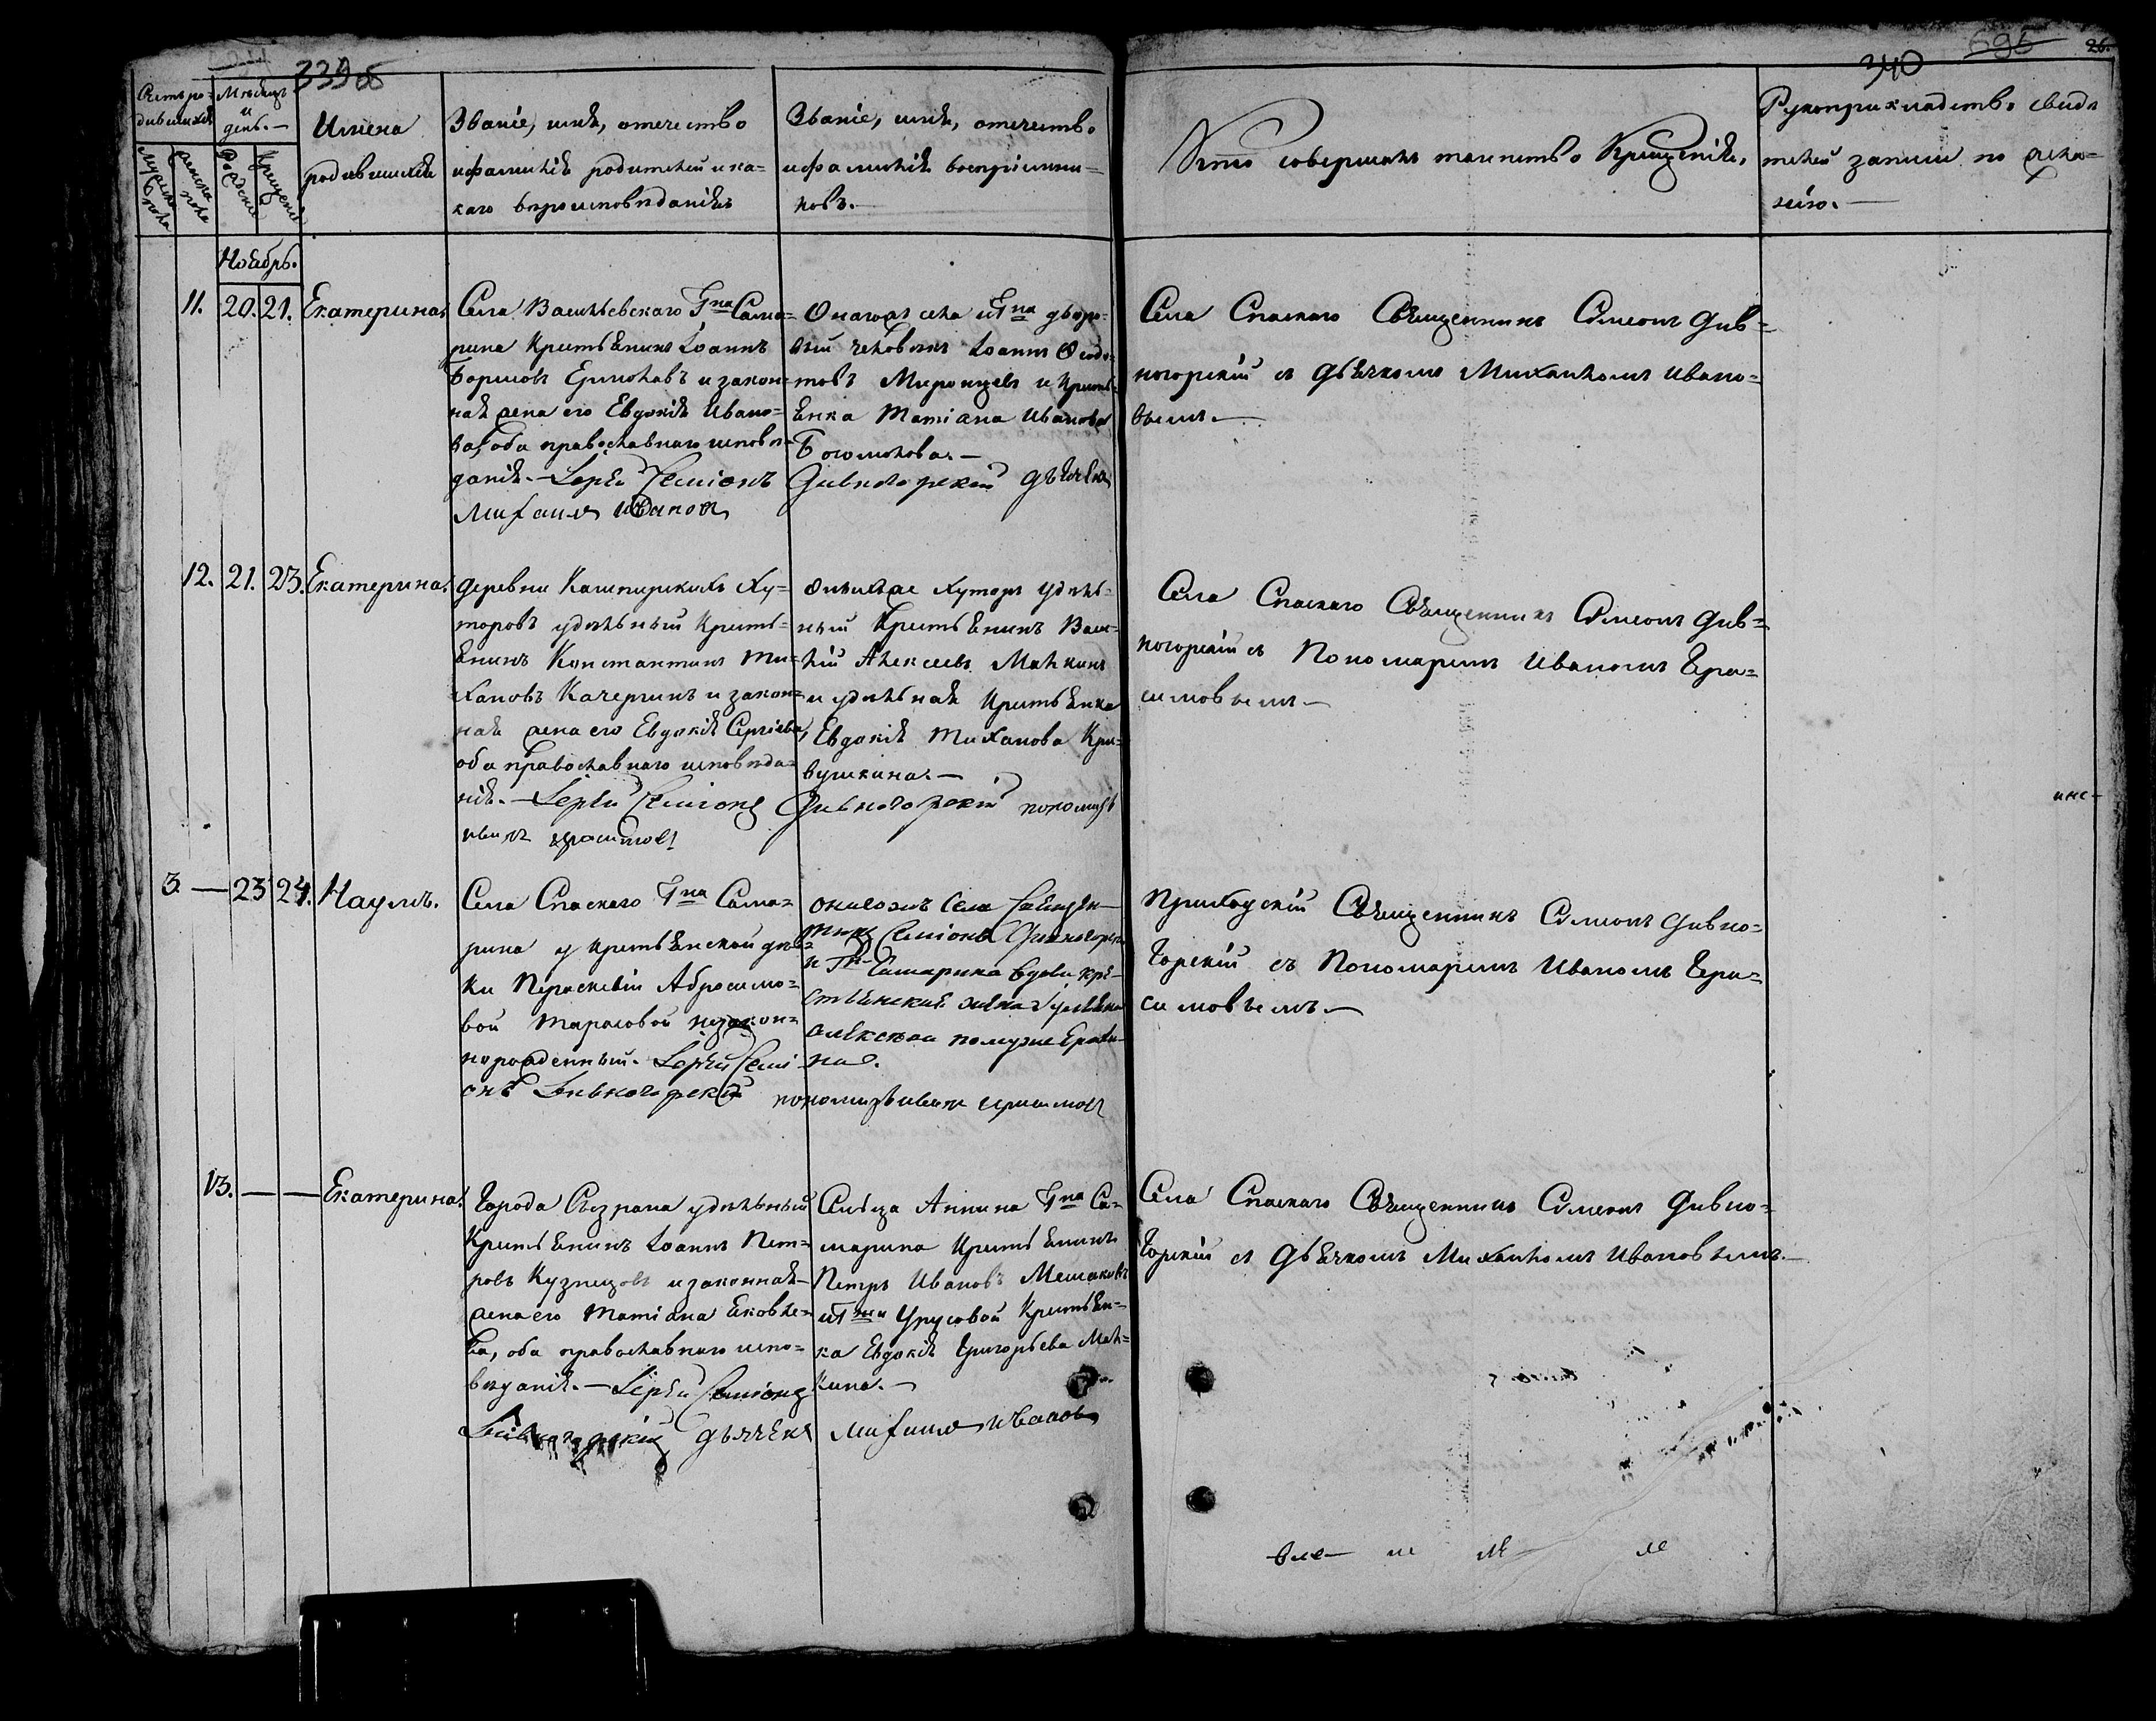 339 об
340
696
26.
Счетъ ро-
дившихся
Мѣсяцъ
и
день.
Имена
родившихся
Званіе, имя, отечество
и фамилія родителей и ка-
каго вѣроисповѣданія
Званіе, имя, отечество
и фамилія воспріемни-
ковъ.
Кто совершалъ таинство Крещенія,
Рукоприкладство свидѣ
телей записи по жела-
нію.
Мужеска пола
женска пола
Рожденія
Крещенія
Ноябрь.
11. 20. 21. Екатерина.
Села Васильевскаго Гна Сама-
рина Крестьянинъ Іоаннъ
Борисовъ Ермолаевъ и закон-
ная жена его Евдокія Ивано-
ва, оба православнаго исповѣ-
данія.— Іерей Семіонъ Дивногорскій дьячекъ
Михаилъ Ивановъ
Онагожъ села и Гна дворо-
вый человѣкъ Іоаннъ
Миронцевъ и Крестья-
янка Татіана Иванова
Богомолова.—
Села Спаскаго Священникъ Симеонъ Див-
ногорскій съ Дьячкомъ Михаиломъ Ивано-
вымъ.—
12. 21. 23. Екатерина.
Деревни Кашпирскихъ Ху-
торовъ удѣльный Кресть-
янинъ Константинъ Ти-
хановъ Качергинъ и закон-
ная жена его Евдокія Сергіева,
оба православнаго исповѣда-
нія.— Іерей Семіонъ Дивногорскій пономарь
Иванъ Герасимовъ
Хуторъ удѣль-
ный Крестьянинъ Васи-
лій Алексеевъ Малкинъ
и удѣльная Крестьянка
Евдокія Тиханова Кри-
вушкина.—
Села Спаскаго Священникъ Симеонъ Див-
ногорскій съ Пономаремъ Иваномъ Гера-
симовымъ.—
3. — 23 24. Наумъ.
Села Спаскаго Гна Сама-
рина у крестьянской дѣв-
ки Пераскевіи Абросимо-
вой Тарасовой незакон-
норожденный. Іерей Семі-
онъ Дивногорскій пономарь Иванъ Герасимовъ
онагожъ Села Священ-
никъ Семіонъ Дивногорск
и Гна Самарина вдова кре-
стьянская жена
Алексѣева по мужу
на.
Приходскій Священникъ Симеонъ Дивно-
горскій съ Пономаремъ Иваномъ Гера-
симовымъ.—
13. — — Екатерина.
Города Сызрана удѣльный
Крестьянинъ Іоаннъ Пет-
ровъ Кузнецовъ и законная
жена его Татіана Яковле-
ва, оба православнаго испо-
вѣданія.— Іерей Семіонъ
Дивногорскій дьячекъ Михаилъ Ивановъ
Сельца Аннина Гна Са-
марина Крестьянинъ
Петръ Ивановъ Мешаковъ
и Гжи Урусовой Крестьян-
ка Евдокія Григорьева Мал-
кина.—
Села Спаскаго Священникъ Симеонъ Дивно-
горскій съ Дьячкомъ Михаиломъ Ивановымъ.—